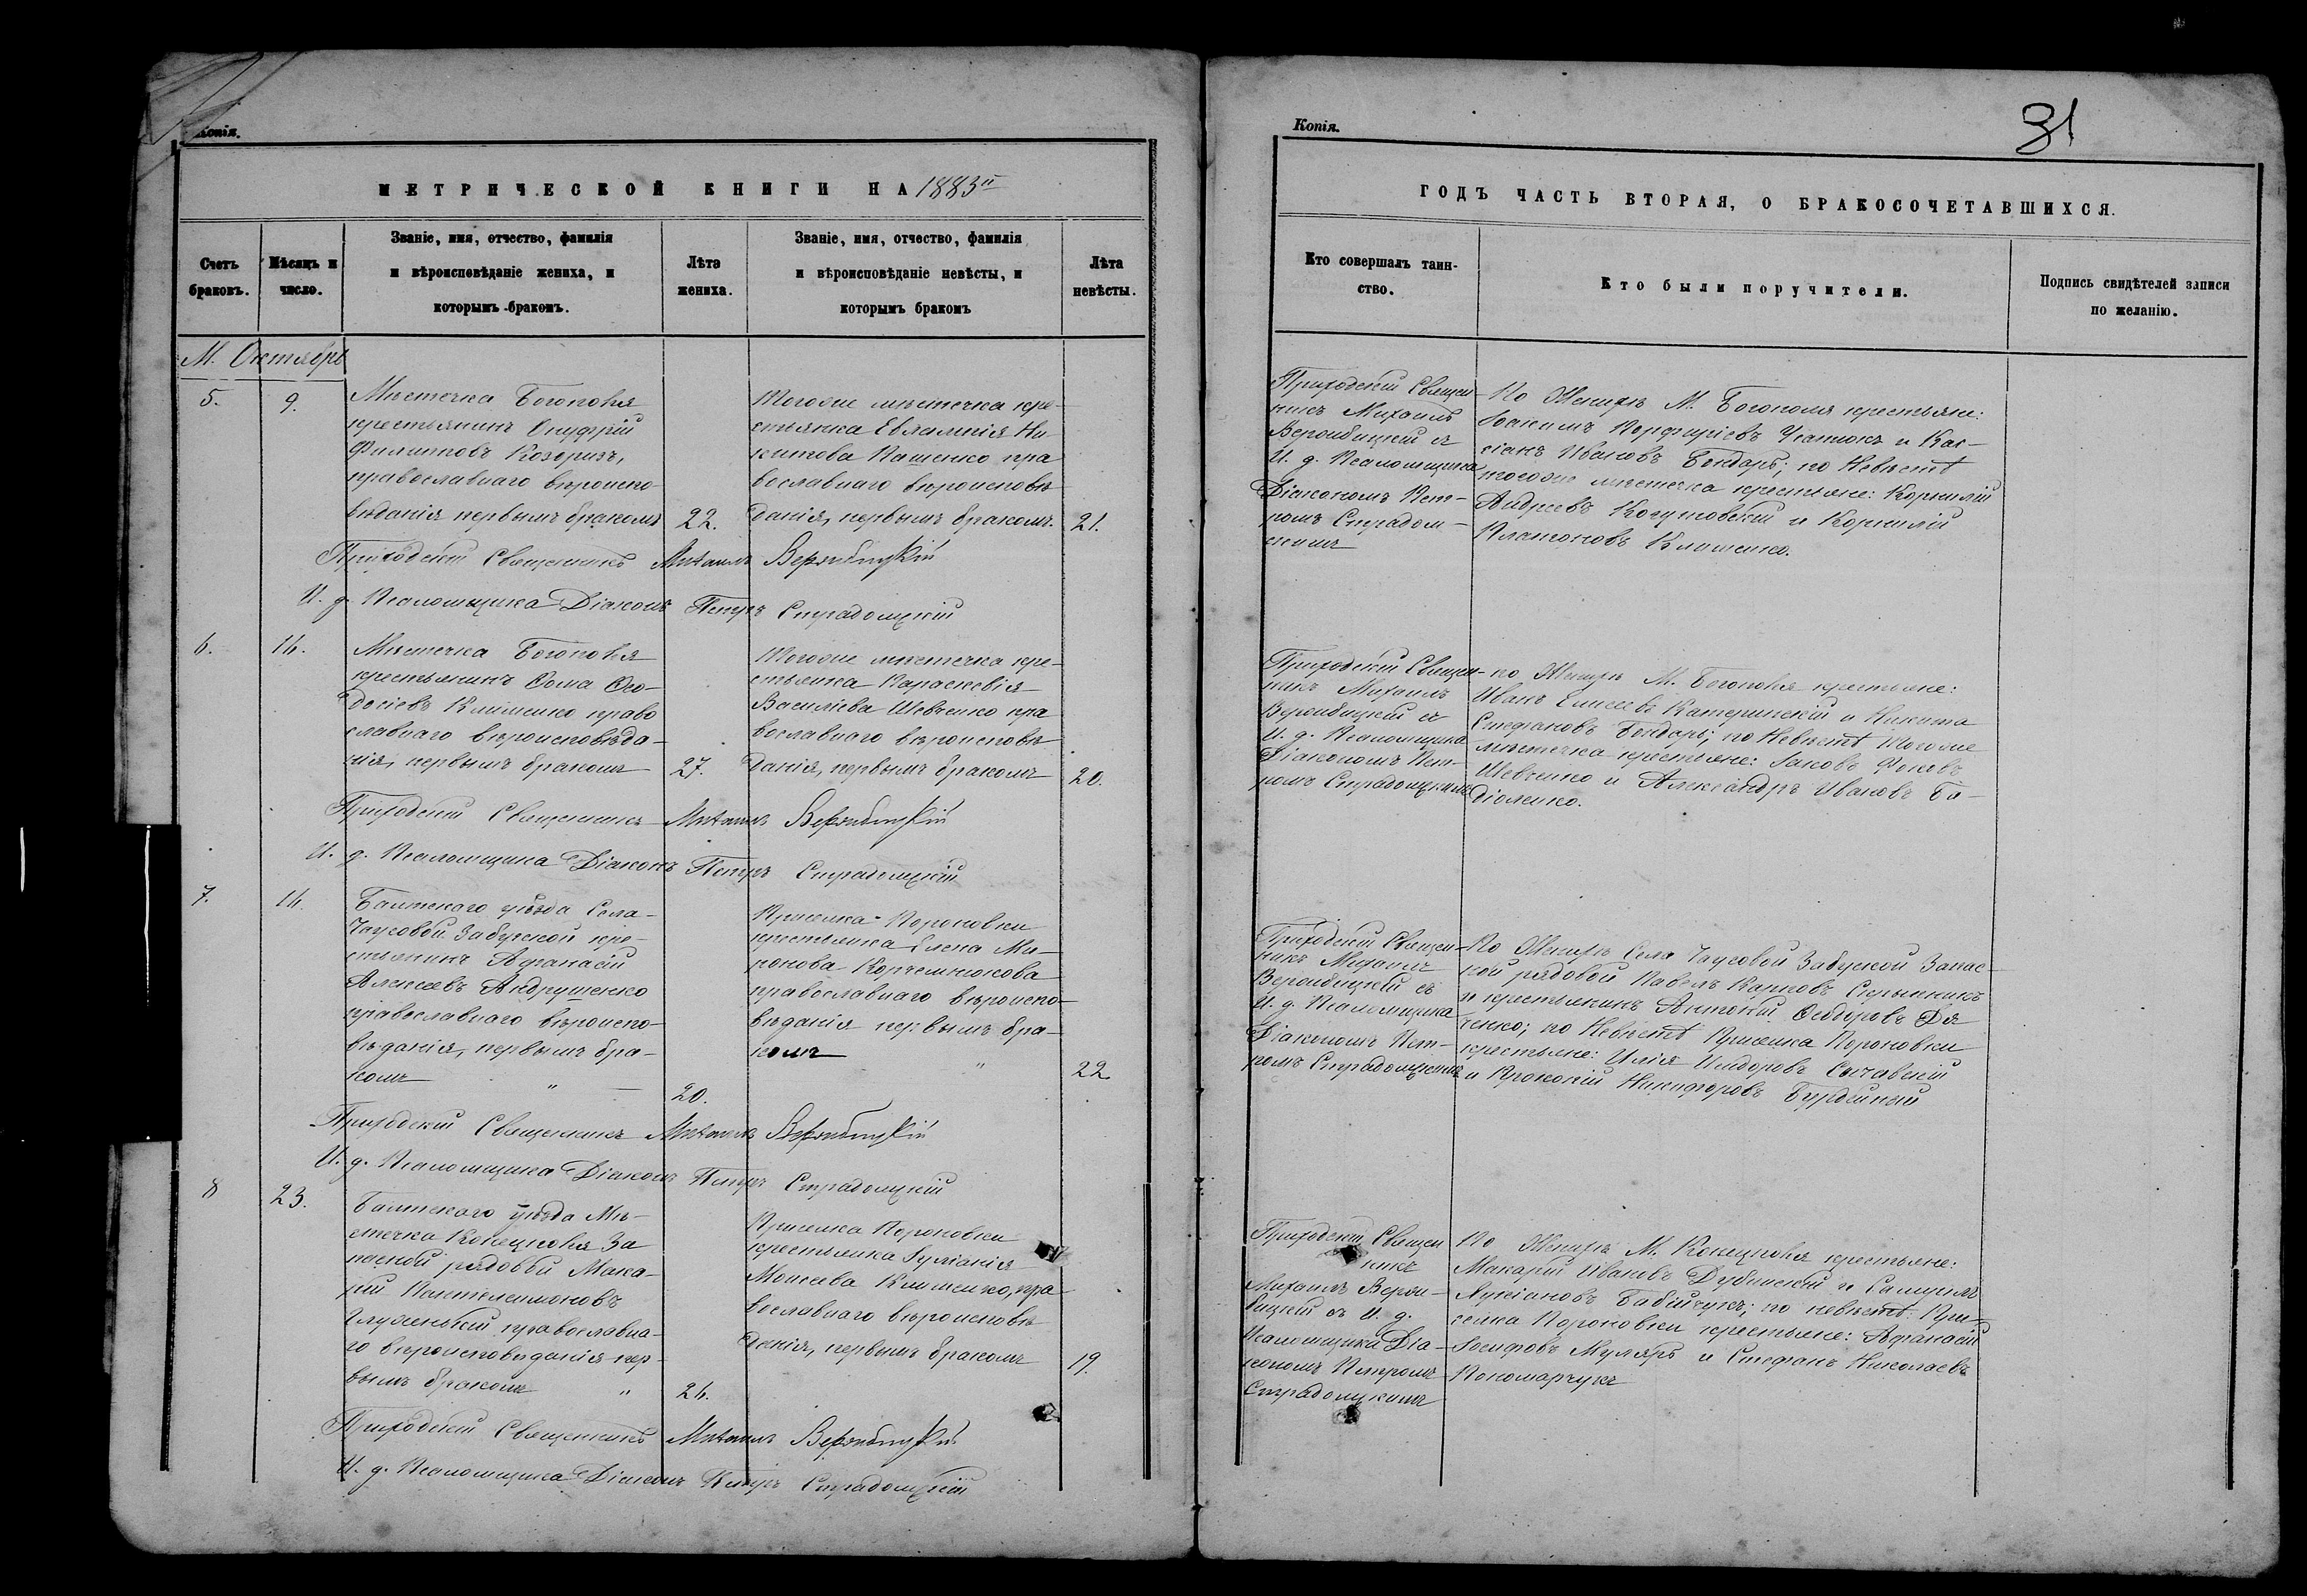 Копія.
МЕТРИЧЕСКОЙ КНИГИ НА 1883й
Счетъ браковъ.
Мѣсяцъ и число.
Званіе, имя, отчество, фамилія
и вѣроисповѣданіе жениха, и
которымъ бракомъ.
Лѣта
жениха.
Званіе, имя, отчество, фамилія
и вѣроисповѣданіе невѣсты, и
которымъ бракомъ
Лѣта
невѣсты.
М. Октябрь
5.
9.
Мѣстечка Богополя
крестьянинъ Онуфрій
Филиповъ Козоризъ,
православнаго вѣроиспо-
вѣданія первымъ бракомъ
22.
Тогоже мѣстечка кре-
стьянка Евлампія Ни-
китова Пашенко пра
вославнаго вѣроисповѣ
данія, первымъ бракомъ.
21.
Приходскій Священникъ Михаилъ
И. д. Псаломщика Діаконъ Петръ Страдомскій
6.
16.
Мѣстечка Богополя
крестьянинъ Ѳома Ѳео-
досіевъ Клименко право
славнаго вѣроисповѣда-
нія, первымъ бракомъ
27.
Тогоже мѣстечка кре-
стьянка Параскевія
Василіева Шевченко пра
вославнаго вѣроисповѣ
данія, первымъ бракомъ
20.
Приходскій Священникъ Михаилъ
И. д. Псаломщика Діаконъ Петръ Страдомскій
7.
16.
Балтскаго уѣзда Села
Чаусовой Забугской кре-
стьянинъ Афанасій
Алексѣевъ Андрушенко
православнаго вѣроиспо-
вѣданія, первымъ бра-
комъ "
20.
Приселка Пороновки
крестьянка Елена Ми-
ронова
православнаго вѣроиспо-
вѣданія первымъ бра-
комъ "
22
Приходскій Священникъ Михаилъ
И. д. Псаломщика Діаконъ Петръ Страдомскій
8
23.
Балтскаго уѣзда Мѣ-
стечка Конецполя За
пасной рядовой Мака-
рій Пантелеимоновъ
православна-
го вѣроисповѣданія пер-
вымъ бракомъ "
24.
Приселка Пороновки
крестьянка Іуліанія
Моисеева Клименко, пра
вославнаго вѣроисповѣ
данія, первымъ бракомъ
19.
Приходскій Священникъ Михаилъ
И. д. Псаломщика Діаконъ Петръ Страдомскій
Копія.
31
ГОДЪ ЧАСТЬ ВТОРАЯ, О БРАКОСОЧЕТАВШИХСЯ.
Кто совершалъ таин-
ство.
Кто были поручители.
Подпись свидѣтелей записи
по желанію.
Приходскій Священ-
никъ Михаилъ
съ
И. д. Псаломщика
Діакономъ Пет-
ромъ Страдом-
скимъ
По Женихѣ М. Богополя крестьяне:
Іоакимъ Порфиріевъ и Кас-
сіанъ Ивановъ Бондарь; по Невѣстѣ
тогоже мѣстечка крестьяне: Корнилій
Андреевъ и Корнилій
Платоновъ Клименко.
Приходскій Священ-
никъ Михаилъ
съ
И. д. Псаломщика
Діакономъ Пет-
ромъ Страдомскимъ
по Женихѣ М. Богополя крестьяне:
Иванъ Елисеевъ Катеринскій и Никита
Стефановъ Бондарь; по Невѣстѣ тогоже
мѣстечка крестьяне: Іаковъ
Шевченко и Александръ Ивановъ
Приходскій Священ-
никъ Михаилъ
съ
И. д. Псаломщика
Діакономъ Пет-
ромъ Страдомскимъ
По Женихѣ Села Чаусовой Забугской Запас-
ной рядовой Павелъ Карповъ
и крестьянинъ Антоній Ѳеодоровъ Дя
ченко; по Невѣстѣ Приселка Пороновки
крестьяне: Илія Исидоровъ
и Прокопій Никифоровъ
Приходскій Священ
никъ
Михаилъ
съ И. д.
Псаломщика Діа-
кономъ Петромъ
Страдомскимъ
По Женихѣ М. Конецполя крестьяне:
Макарій Ивановъ Дубинскій и Самуилъ
Лукіановъ Бабійчукъ; по невѣстѣ При-
селка Пороновки крестьяне: Афанасій
Іосифовъ Муляръ и Стефанъ Николаевъ
Пономарчукъ